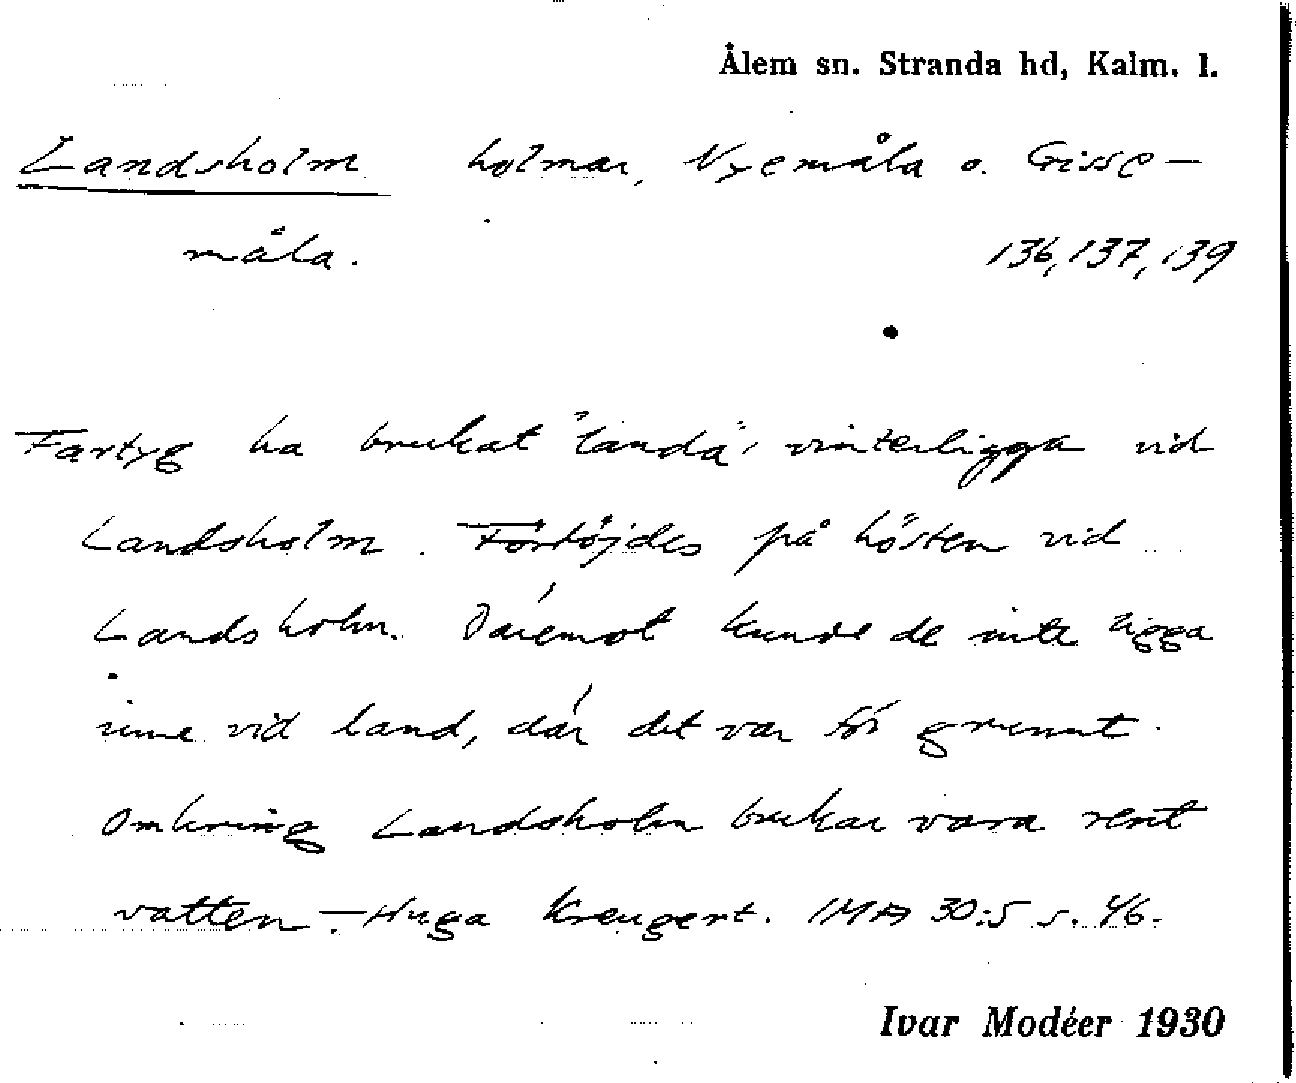 Ålem sn. Stranda hd, Kalm. l.
Landsholm holmar, Nyemåla o. Gisse-
måla.
136, 137, 139
Fartyg ha brukat "landa", vinterligga vid
Landsholm. Förtöjdes på hösten vid
Landsholm. Däremot kunde de inte ligga
inne vid land, där det var för grunnt.
Omkring Landsholm brukar vara rent
vatten. – Huga Kreugert. IMA 30:5 s. 46.
Ivar Modéer 1930